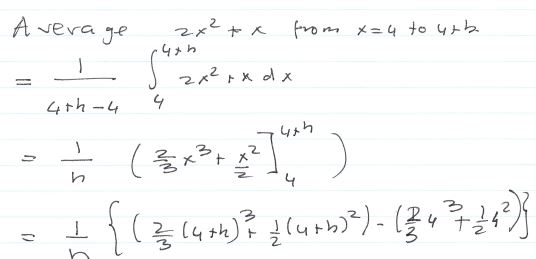 Average 2x² + x from x=4 to 4+h
= 1/(4+h-4) ∫₄⁴⁺ʰ 2x² + x dx
= 1/h ( 2/3 x³ + x²/2 ]₄⁴⁺ʰ )
= 1/h { ( 2/3 (4+h)³ + 1/2 (4+h)² ) - ( 2/3 4³ + 1/2 4² ) }